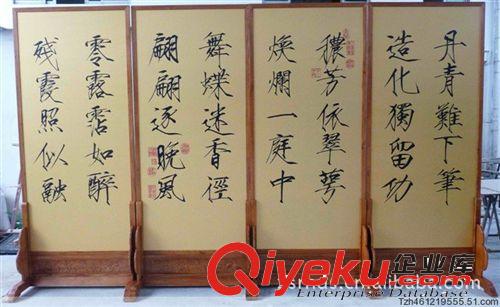 丹青難下筆
造化獨留功
穠芳依翠萼
煥爛一庭中
舞蝶迷香徑
翩翩逐晚風
零露霑如醉
殘霞照似融
Qiyeku.com
企业库
Enterprise Database
Tzh461219555.51.com